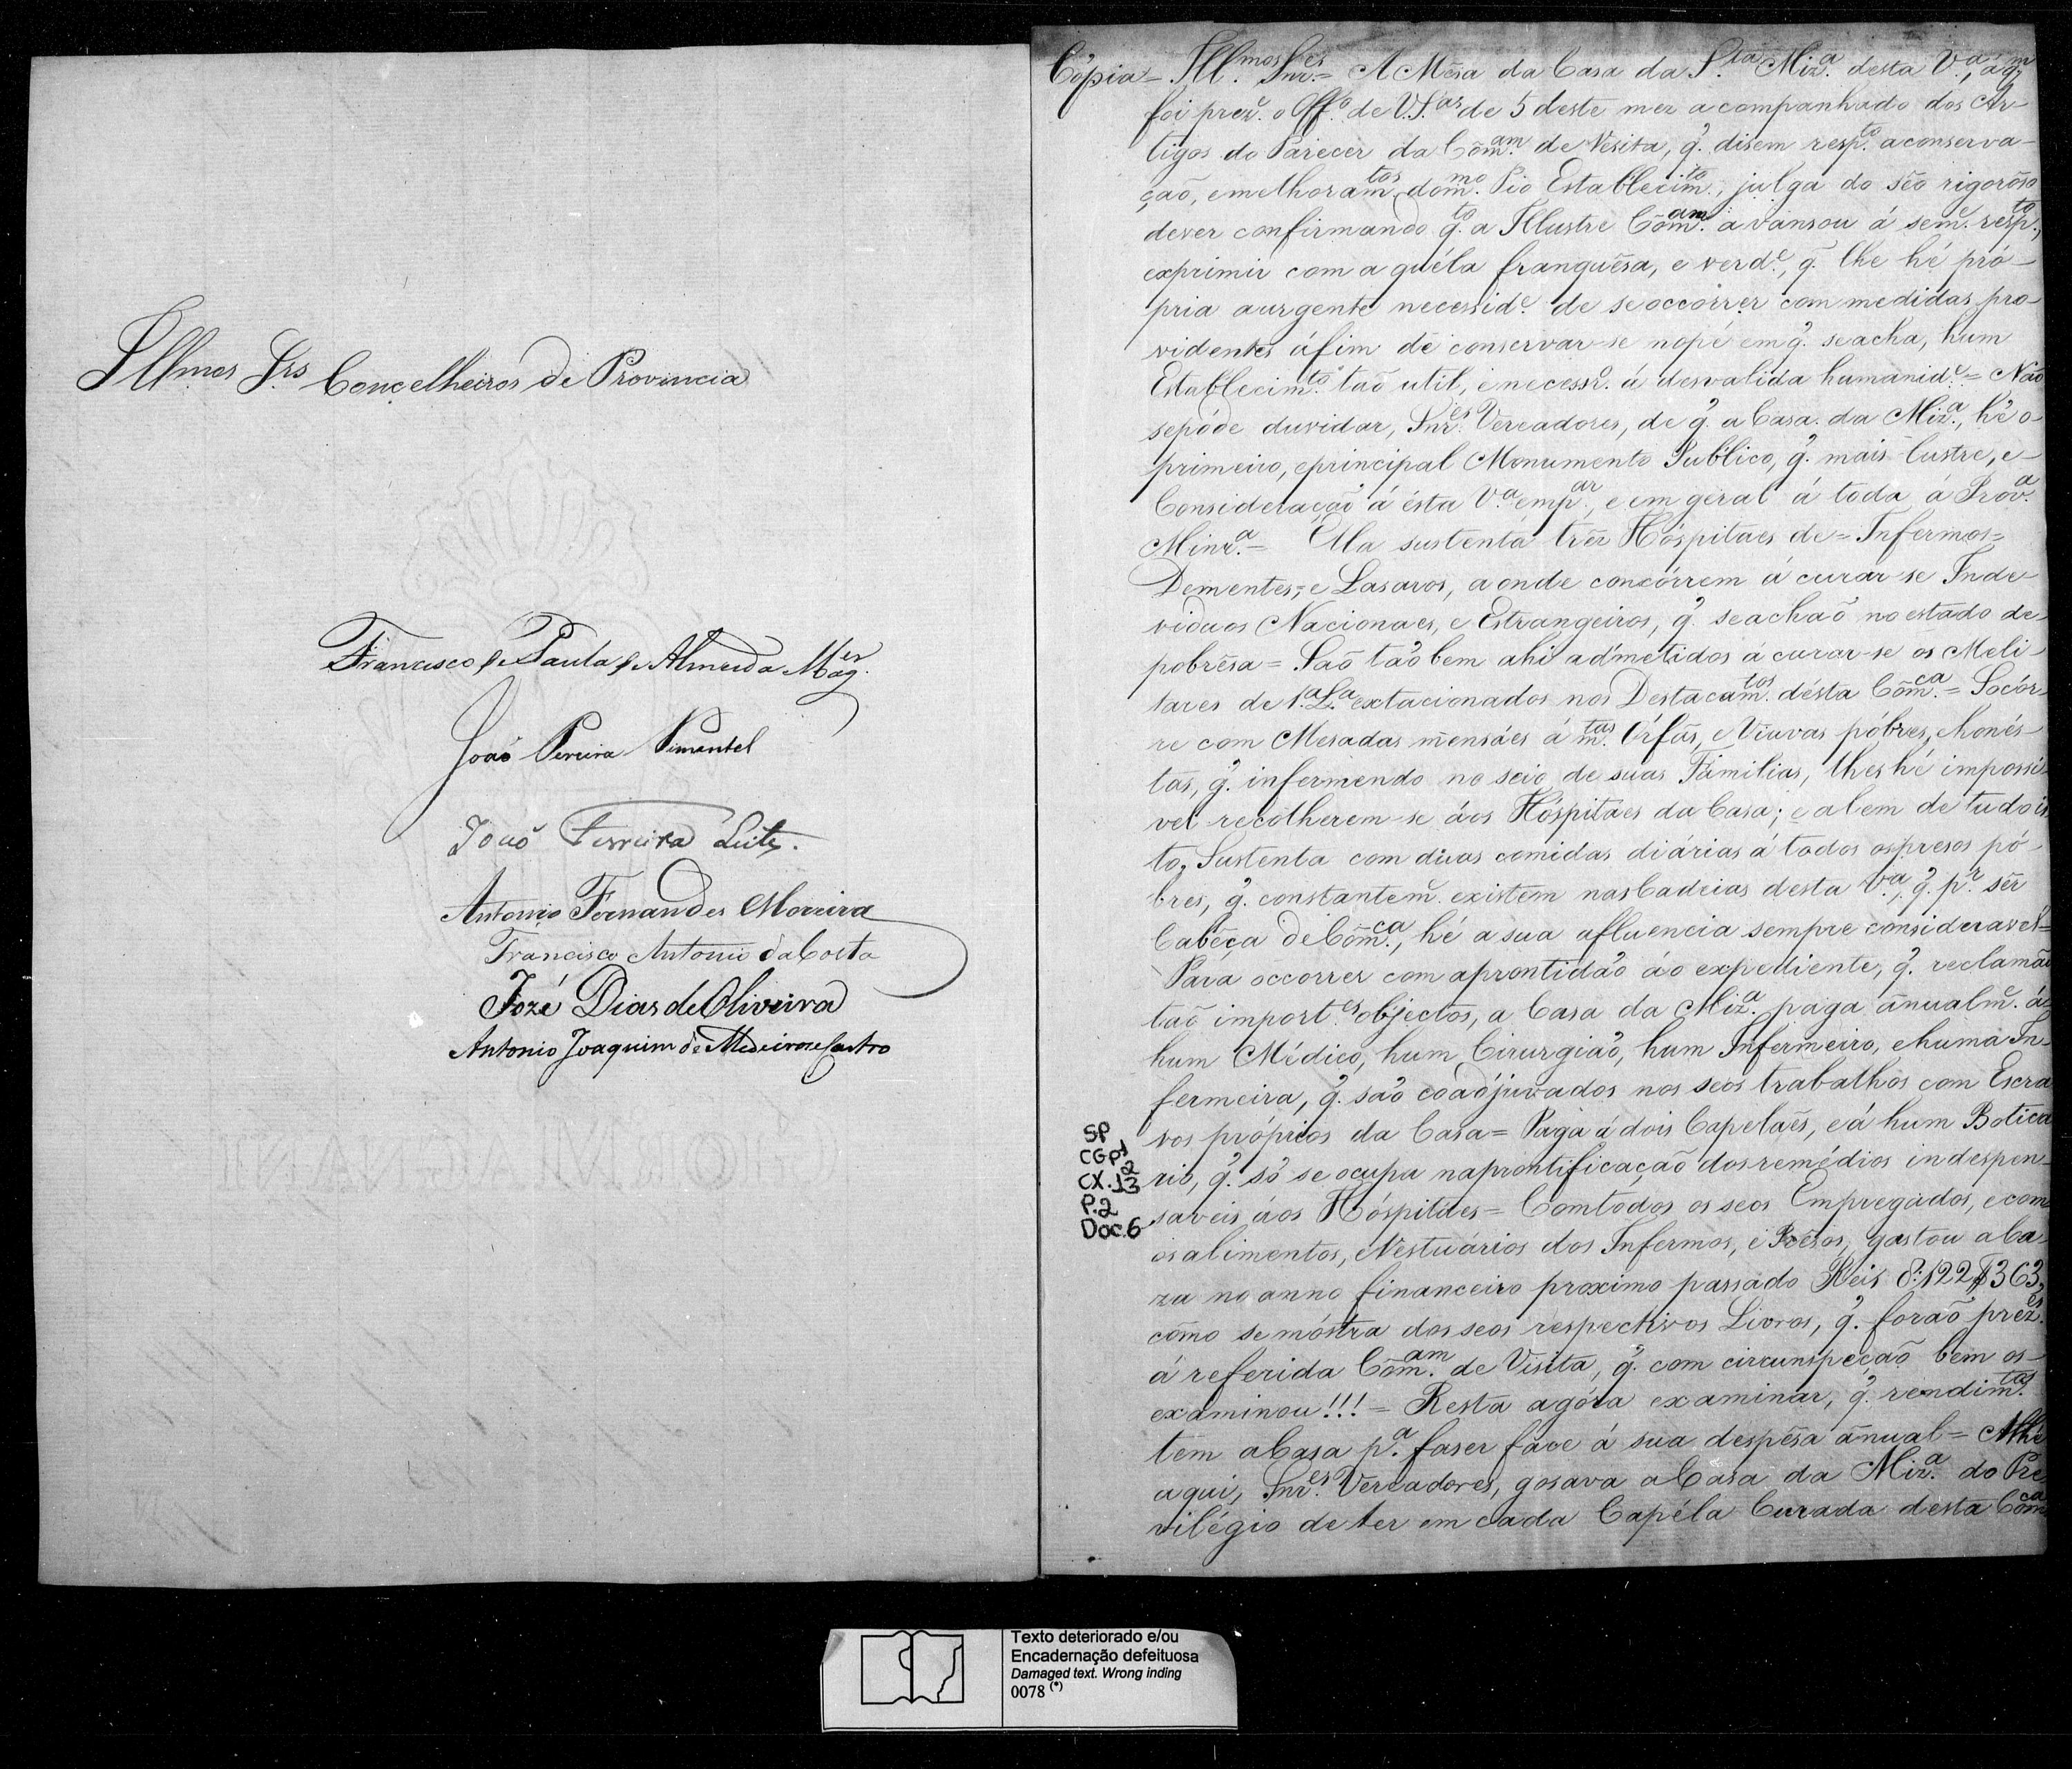 Illmos Srs Concelheiros de Provincia
Francisco de Paula de Almeida Mag.es
João Pereira Pimentel
João Ferreira Leite.
Antonio Fernandes Moreira
Francisco Antonio da Costa
Jozé Dias de Oliveira
Antonio Joaquim de Medeiros e Castro
Cópia = Ill.mos Snr.es = A Mêsa da Casa da S.ta Miz.a desta V.a, á q.m
foi prez.e o Off.o de V.S.as de 5 deste mez acompanhado dos Ar-
tigos do Parecer da Cõm.am de Vesita, q̃. disem resp.to a conserva-
ção, e melhoram.tos do m.mo Pio Establecim.to, julga do sêo rigorôso
dever confirmando q.to a Illustre Cõm.am avansou á sem.e resp.to,
exprimir com aquéla franquêsa, e verd.e, q̃. lhe hé pró-
pria a urgente necessid.e de se occórrer com medidas pro-
videntes áfim de conservar-se no pé em q̃. se acha, hum
Establecim.to tão util, e necessr.o á desvalida humanid.e = Não
se póde duvidar, Snr.es Vereadores, de q̃. a Casa da Miz.a, hé o
primeiro, e principal Monumento Publico, q̃. mais lustre, e
Consideração dá ésta V.a em p.ar, e em geral á toda á Prov.a
Minr.a = Élla sustenta trêz Hóspitaes de = Infermos =
Dementes, = e Lasaros, aonde concórrem á curar-se Inde-
viduos Nacionaes, e Estrangeiros, q̃. se achão no estado de
pobrêsa = São tão bem ahi admetidos á curar-se os Meli-
tares de 1.a L.a extacionados nos Destacam.tos désta Cõm.ca = Socór-
re com Mesadas mensáes á m.tas Órfãs, e Viuvas póbres, e honés-
tas, q̃. infermendo no seio de suas Familias, lhes hé impossi-
vel recolherem-se áos Hóspitáes da Casa; e alem de tudo is
to, Sustenta com duas comidas diárias á todos os presos pó-
bres, q̃. constantem.e existem nas Cadeias desta V.a, q̃. p.r sêr
Cabêça de Cõm.ca, hé a sua afluencia sempre consideravel =
Para occorrer com a prontidão áo expediente, q̃. reclamão
tão import.es objectos, a Casa da Miz.a paga ãnualm.e á
hum Médico, hum Cirurgião, hum Infermeiro, e huma In-
fermeira, q̃. são coadjuvados nos seos trabalhos com Escra
vos próprios da Casa = Paga á dois Capelães, e á hum Botica
rio, q̃. só se ocupa na prontificação dos remédios indespen-
saveis áos Hóspitáes = Com todos os seos Empregados, e com
os alimentos, e Vestuários dos Infermos, e Prêsos, gastou a Ca-
za no anno financeiro proximo passado Reis 8:122$363,
cômo se móstra dos seos respectivos Livros, q̃. forão prez.es
á referida Cõm.am de Visita, q̃. com circunspecção bem os
examinou!!! = Resta agóra examinar, q̃. rendim.tos
tem a Casa p.a faser face á sua despêsa ãnual = Athe
aqui, Snr.es Vereadores, gosava a Casa da Miz.a do Pre
vilégio de ter em cada Capéla Curada desta Cõm.ca
SP
CGP1
CX.12
13
P.2
Doc.6
Texto deteriorado e/ou
Encadernação defeituosa
Damaged text. Wrong inding
0078 (*)